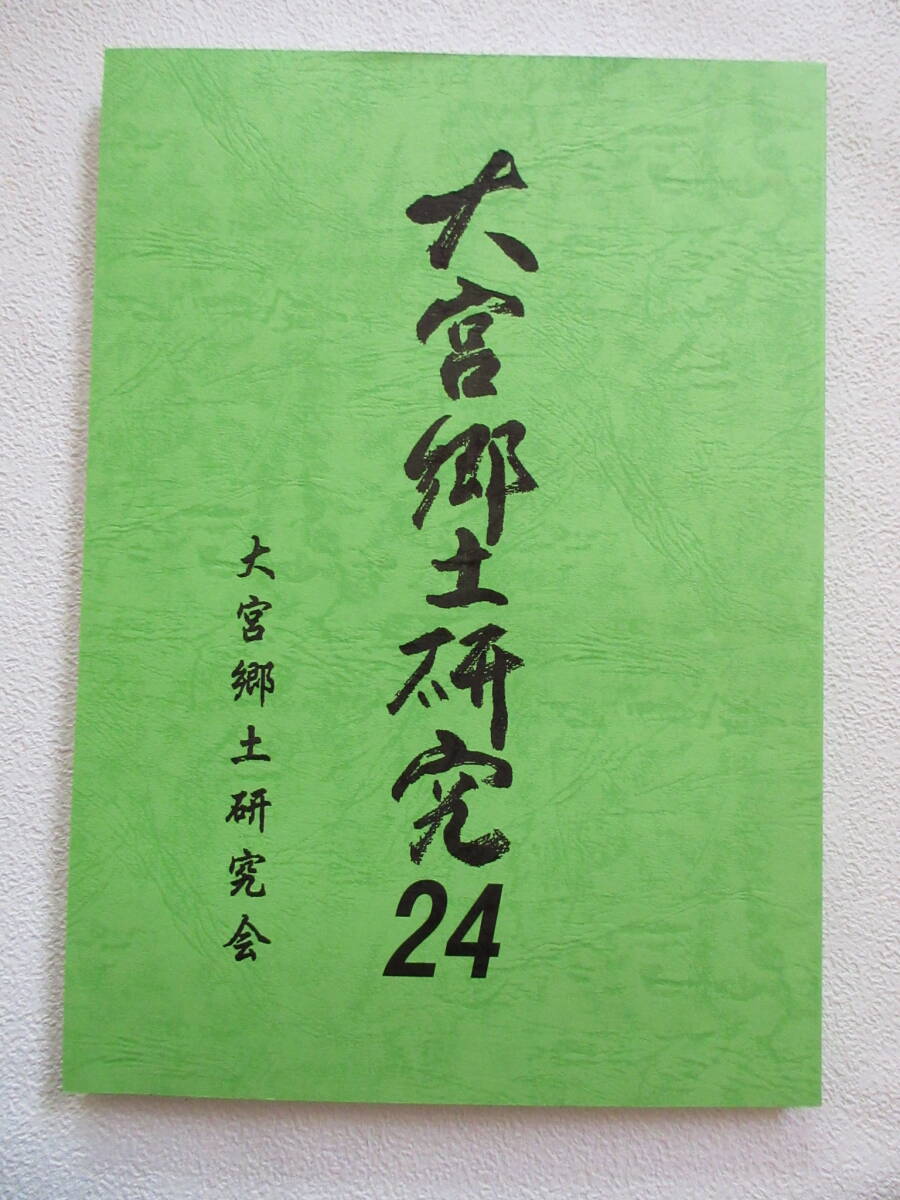 大宮郷土研究24
大宮郷土研究会